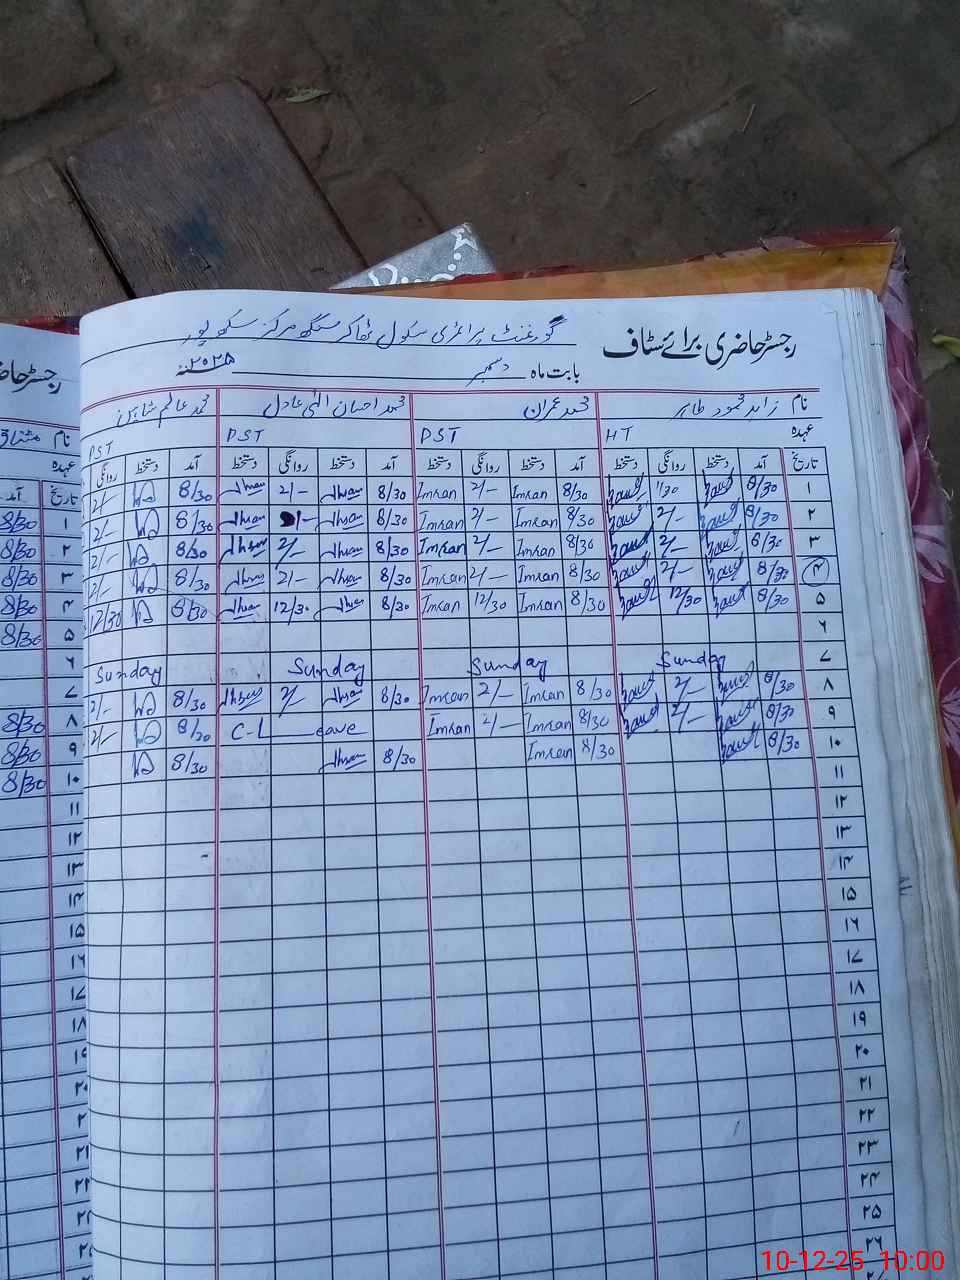 رجسٹر حاضری برائے سٹاف
گورنمنٹ پرائمری سکول ٹھاکر سنگھ مرکز سکھ پور
بابت ماہ دسمبر ۲۰۲۵
نام زاہد محمود طاہر محمد عمران محمد احسان الٰہی عادل محمد عالم شاہین
عہدہ HT PST PST PST
تاریخ آمد دستخط روانگی دستخط آمد دستخط روانگی دستخط آمد دستخط روانگی دستخط آمد دستخط روانگی
۱ 8/30 1/30 8/30 Imran 2/- Imran 8/30 Ihsan 2/- Ihsan 8/30 2/-
۲ 8/30 2/- 8/30 Imran 2/- Imran 8/30 Ihsan 2/- Ihsan 8/30 2/-
۳ 8/30 2/- 8/30 Imran 2/- Imran 8/30 Ihsan 2/- Ihsan 8/30 2/-
۴ 8/30 2/- 8/30 Imran 2/- Imran 8/30 Ihsan 2/- Ihsan 8/30 2/-
۵ 8/30 12/30 8/30 Imran 12/30 Imran 8/30 Ihsan 12/30 Ihsan 8/30 12/30
۶
۷ Sunday Sunday Sunday Sunday
۸ 8/30 2/- 8/30 Imran 2/- Imran 8/30 Ihsan 2/- Ihsan 8/30 2/-
۹ 8/30 2/- 8/30 Imran 2/- Imran C-L eave 8/30 2/-
۱۰ 8/30 8/30 Imran 8/30 Ihsan 8/30
۱۱
۱۲
۱۳
۱۴
۱۵
۱۶
۱۷
۱۸
۱۹
۲۰
۲۱
۲۲
۲۳
۲۴
۲۵
۲۶
رجسٹر حاضری
نام مشتاق
عہدہ
تاریخ آمد
۱ 8/30
۲ 8/30
۳ 8/30
۴ 8/30
۵ 8/30
۶
۷
۸ 8/30
۹ 8/30
۱۰ 8/30
۱۱
۱۲
۱۳
۱۴
۱۵
۱۶
۱۷
۱۸
۱۹
۲۰
10-12-25 10:00